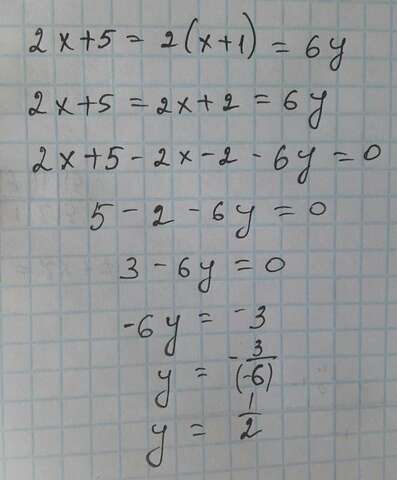 2x+5 = 2(x+1) = 6y
2x+5 = 2x+2 = 6y
2x+5-2x-2-6y = 0
5-2-6y = 0
3-6y = 0
-6y = -3
y = -3/(-6)
y = 1/2